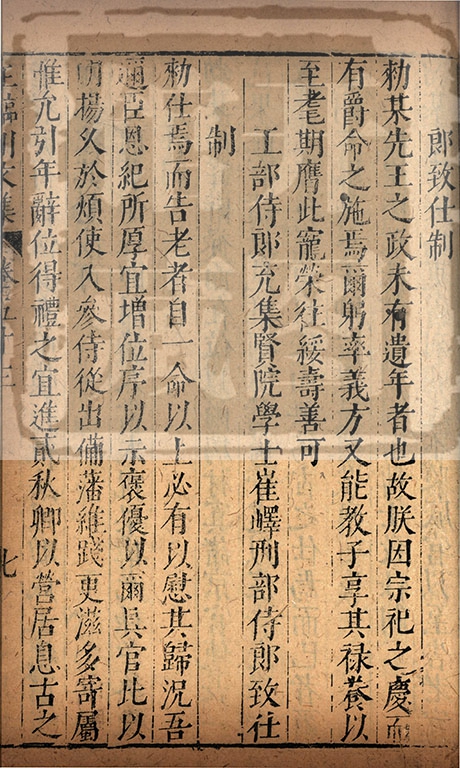 郎致仕制
勑某先王之政未有遺年者也故朕因宗祀之慶而
有爵命之施焉爾躬率義方又能教子享其祿養以
至耄期膺此寵榮往綏壽善可
工部侍郎充集賢院學士崔嶧刑部侍郎致仕
制
勑仕焉而告老者自一命以上必有以慰其歸況吾
邇臣恩紀所厚宜增位序以示褒優以爾具官比以
明揚久於煩使入參侍從出備藩維踐更滋多寄屬
惟允引年辭位得禮之宜進貳秋卿以營居息古之
王臨川文集 卷五十三 七